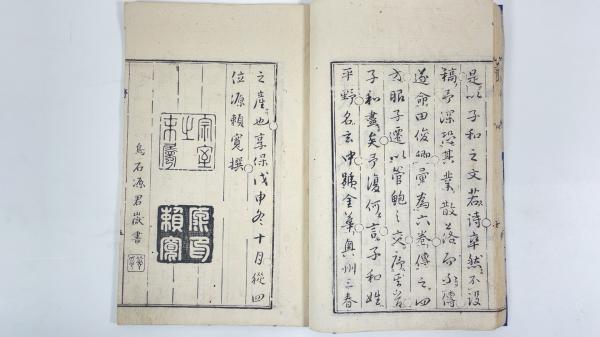 是以子和之文若詩卒然不設
稿予深恐其業散落而不傳
遂俞田俊卿彙為六卷傳之四
方服子遷以管鮑之交序其首
子和盡矣予復何言子和姓
平野名玄中號金華奧州三春
之產也享保戊申冬十月從四
位源賴寬撰
宗室之末
賴寬
烏石源君嶽書